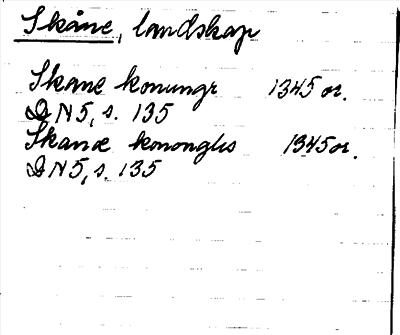 Skåne, landskap
Skane konungr 1345 or.
DN5, s. 135
Skanæ konongls 1345 or.
DN5, s. 135